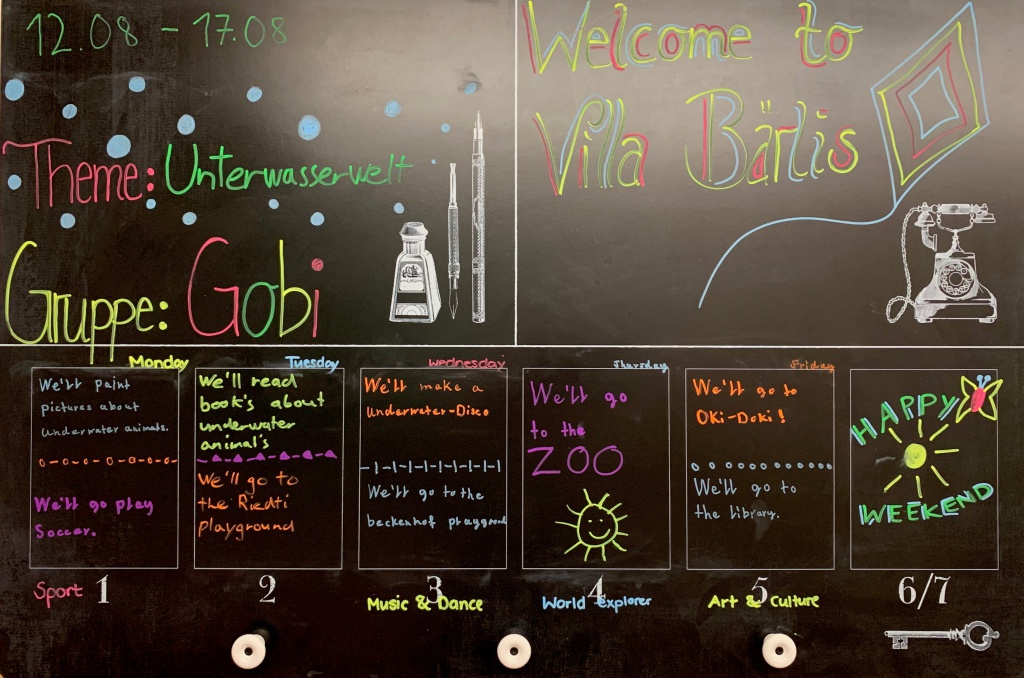 12.08 - 17.08
Theme: Unterwasserwelt
Gruppe: Gobi
Welcome to
Villa Bärlis
Monday
We'll paint
pictures about
underwater animals.
We'll go play
Soccer.
Sport 1
Tuesday
We'll read
book's about
underwater
animal's
We'll go to
the Riedtli
playground
2
Wednesday
We'll make a
Underwater-Disco
We'll go to the
beckenhof playground
3
Music & Dance
Thursday
We'll go
to the
ZOO
4
World Explorer
Friday
We'll go to
Oki-Doki!
We'll go to
the library.
5
Art & Culture
HAPPY
WEEKEND
6/7